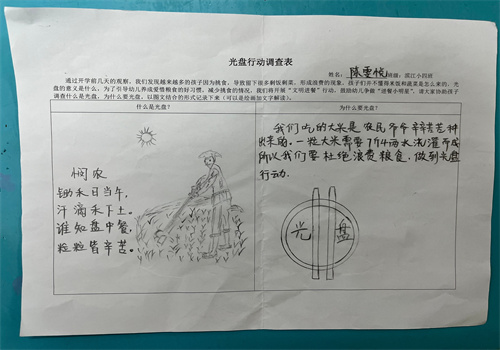 光盘行动调查表
姓名：陈 班级：滨江小四班
通过开学前几天的观察，我们发现越来越多的孩子因为挑食，导致留下很多剩饭剩菜，形成浪费的现象，孩子们并不懂得米饭和蔬菜是怎么来的，光
盘的意义是什么，为了引导幼儿养成爱惜粮食的好习惯，减少挑食的情况，我们将开展“文明进餐”行动，鼓励幼儿争做“进餐小明星”，请大家协助孩子
调查什么是光盘，为什么要光盘，以图文结合的形式记录下来（可以是绘画加文字解读）。
什么是光盘？
为什么要光盘？
悯农
锄禾日当午，
汗滴禾下土。
谁知盘中餐，
粒粒皆辛苦。
我们吃的大米是农民爷爷辛辛苦苦种
出来的。一粒大米需要 水浇灌而成
所以我们要杜绝浪费粮食，做到光盘
行动.
光盘